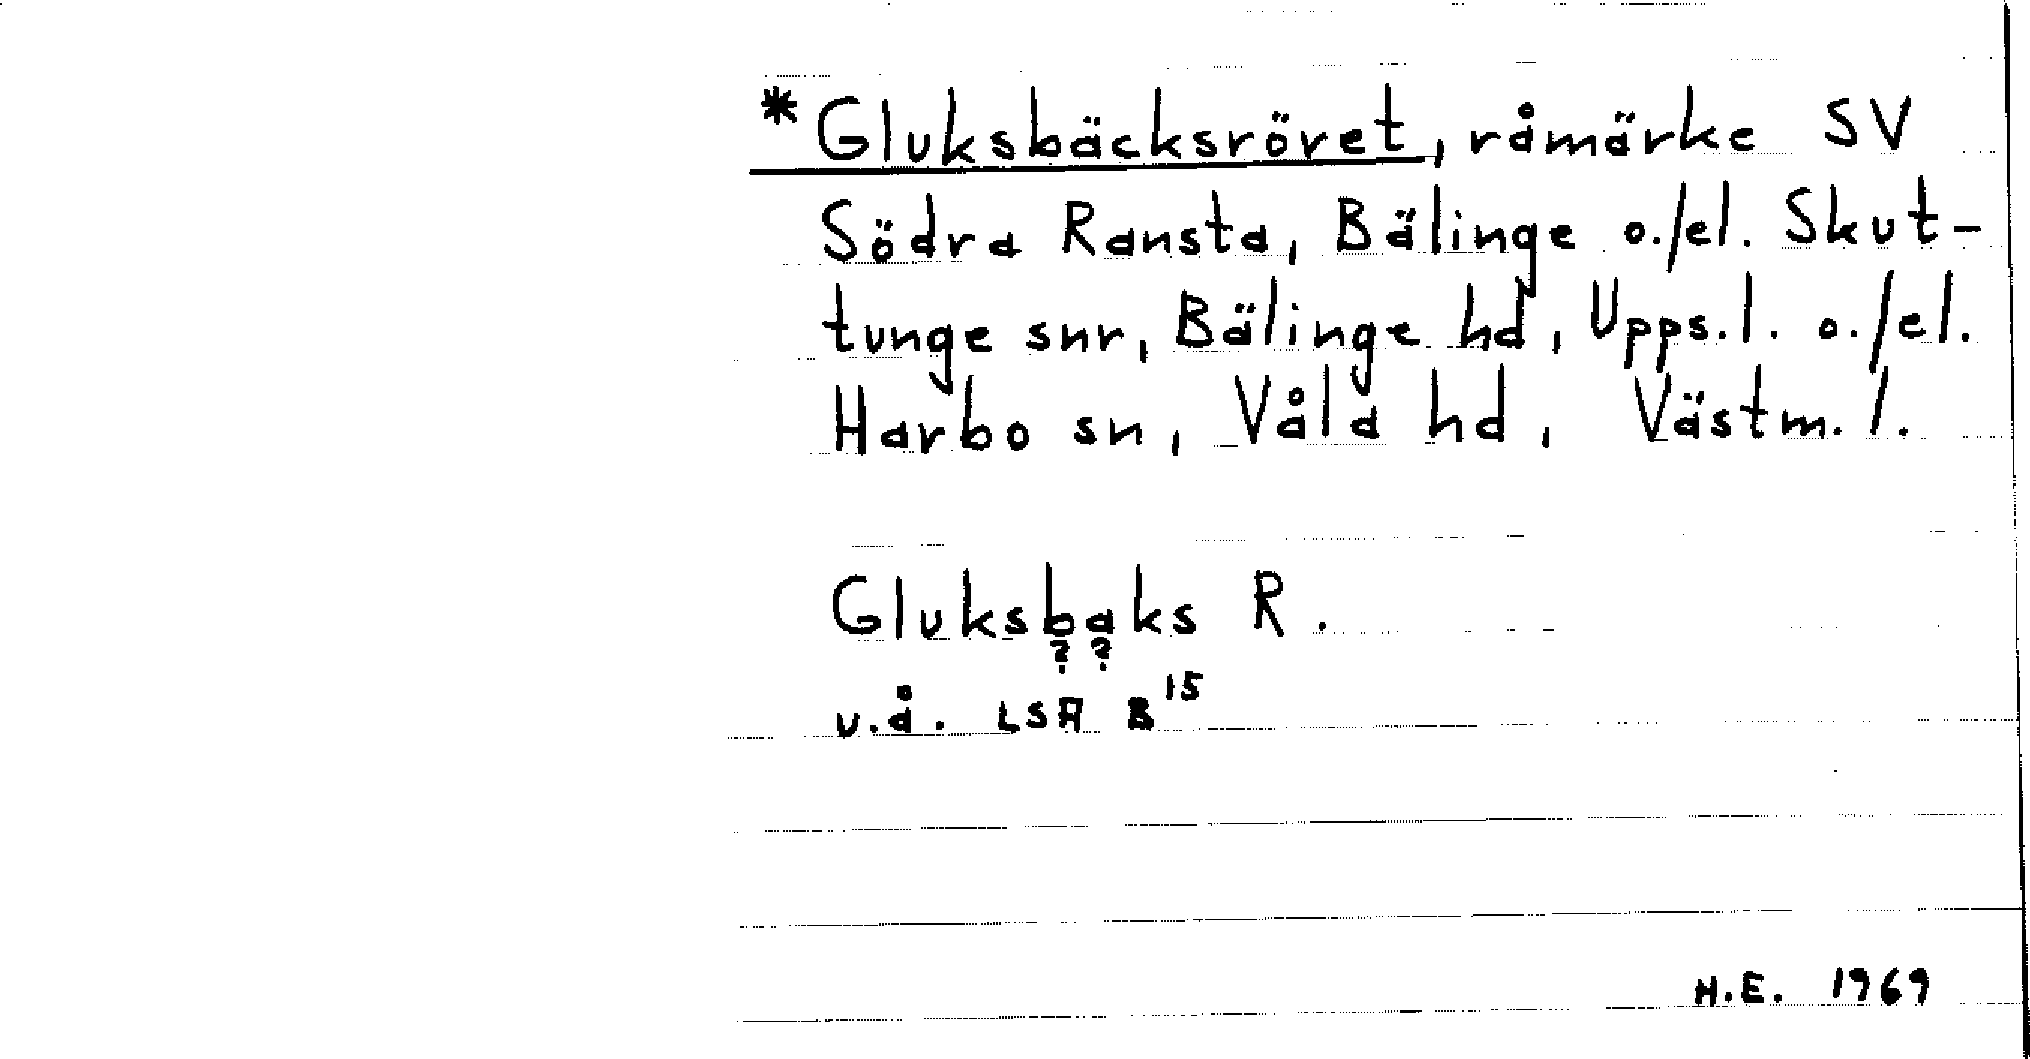 *Gluksbäcksröret, råmärke SV
Södra Ransta, Bälinge o./el. Skut-
tunge snr, Bälinge hd, Upps.l. o./el.
Harbo sn, Våla hd, Västm.l.
Gluksbaks R.
? ?
u.å. LSA B15
H.E. 1969